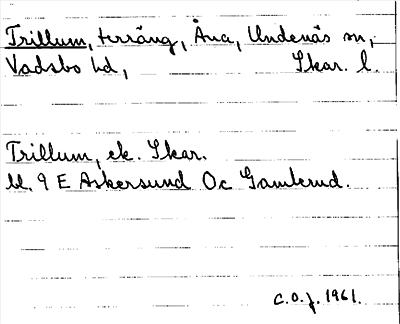 Trillum, terräng, Åna, Undenäs sn,
Vadsbo hd, Skar. l.
Trillum, ek. Skar.
bl. 9 E Askersund Oc Gamlerud.
C.O.J. 1961.